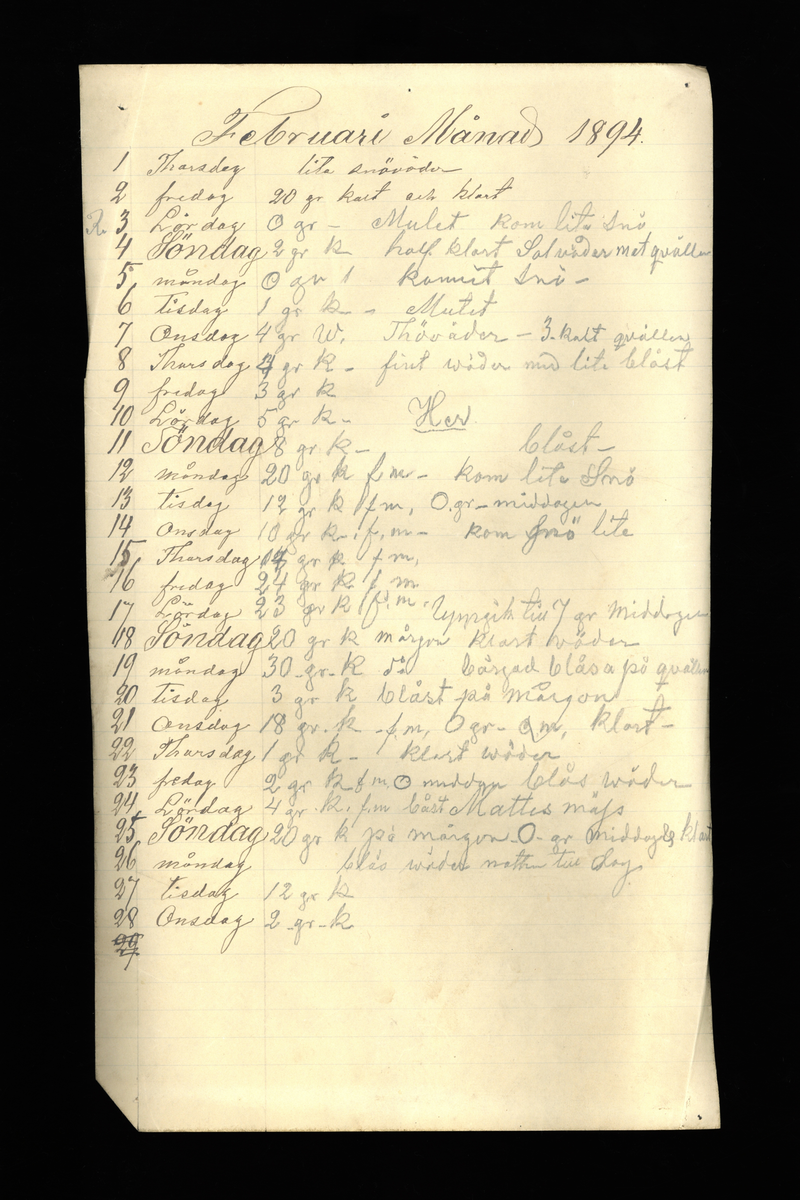 Februari Månad 1894.
1 Thorsdag lite snöväder
2 fredag 20 gr kalt och klart
3 Lördag 0 gr - Mulet kom lite Snö
4 Söndag 2 gr k half klart Solväder met qvällen
5 måndag 0 gr kommit Snö -
6 tisdag 1 gr k - - Mulet
7 Onsdag 4 gr W. Thöväder - 3. kalt qvällen
8 Thorsdag 4 gr k - fint wäder med lite blåst
9 fredag 3 gr k
10 Lördag 5 gr k - Her
11 Söndag 8 gr k - blåst -
12 måndag 20 gr k f,m - kom lite Snö
13 tisdag 12 gr k f m, 0.gr - middagen
14 Onsdag 10 gr k - f,m - kom Snö lite
15 Thorsdag gr k f m,
16 fredag 24 gr k f m
17 Lördag 23 gr k f.m - Uppgik till 7 gr Middagen
18 Söndag 20 gr k mårgon klart wäder
19 måndag 30 - gr - K då börjad blåsa på qvällen
20 tisdag 3 gr k blåst på Mårgon
21 Onsdag 18 gr - k - f,m, 0 gr - e,m, klart -
22 Thorsdag 1 gr k - klart wäder
23 fredag 2 gr k f,m, 0 middan blås wäder
24 Lördag 4 gr . k . f.m blåst Mattes mäss
25 Söndag 20 gr k på mårgon - 0 - gr Middags klart
26 måndag blås wäder natten till dag
27 tisdag 12 gr k
28 Onsdag 2 - gr - k
29